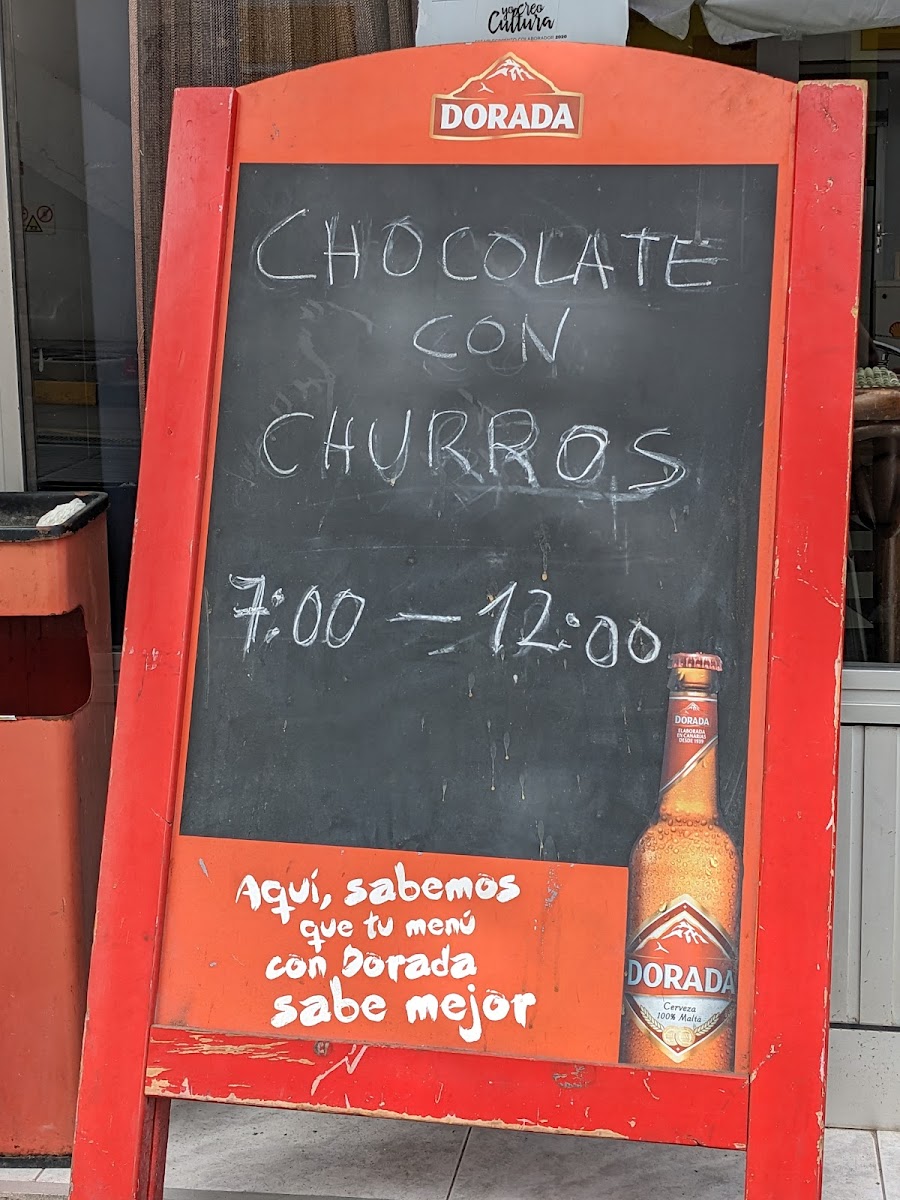 yo creo
Cultura
COLABORADOR 2020
DORADA
CHOCOLATE
CON
CHURROS
7:00 — 12:00
DORADA
ELABORADA
EN CANARIAS
DESDE 1939
Aquí, sabemos
que tu menú
con Dorada
sabe mejor
DORADA
Cerveza
100% Malta